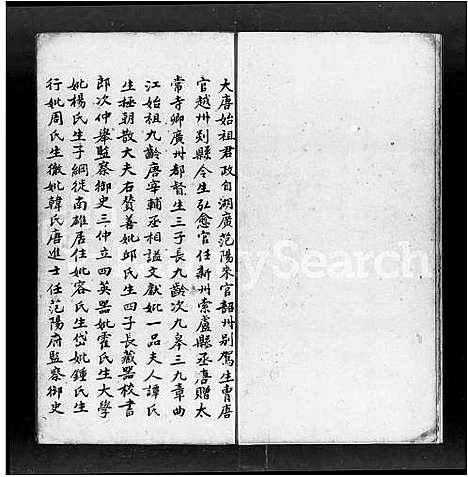 大唐始祖君政自湖廣范陽來官韶州別駕生胄唐
官越州剡縣令生弘愈官任新州索盧縣丞唐贈太
常寺卿廣州都督生三子長九齡次九皋三九章曲
江始祖九齡唐宰輔丞相謚文獻妣一品夫人譚氏
生極朝散大夫右贊善妣邱氏生四子長藏器校書
郎次仲舉監察御史三仲立四英器妣霍氏生大學
妣楊氏生子綱從南雄居住妣容氏生岱妣鍾氏生
行妣周氏生徹妣韓氏唐進士任范陽府監察御史
Search